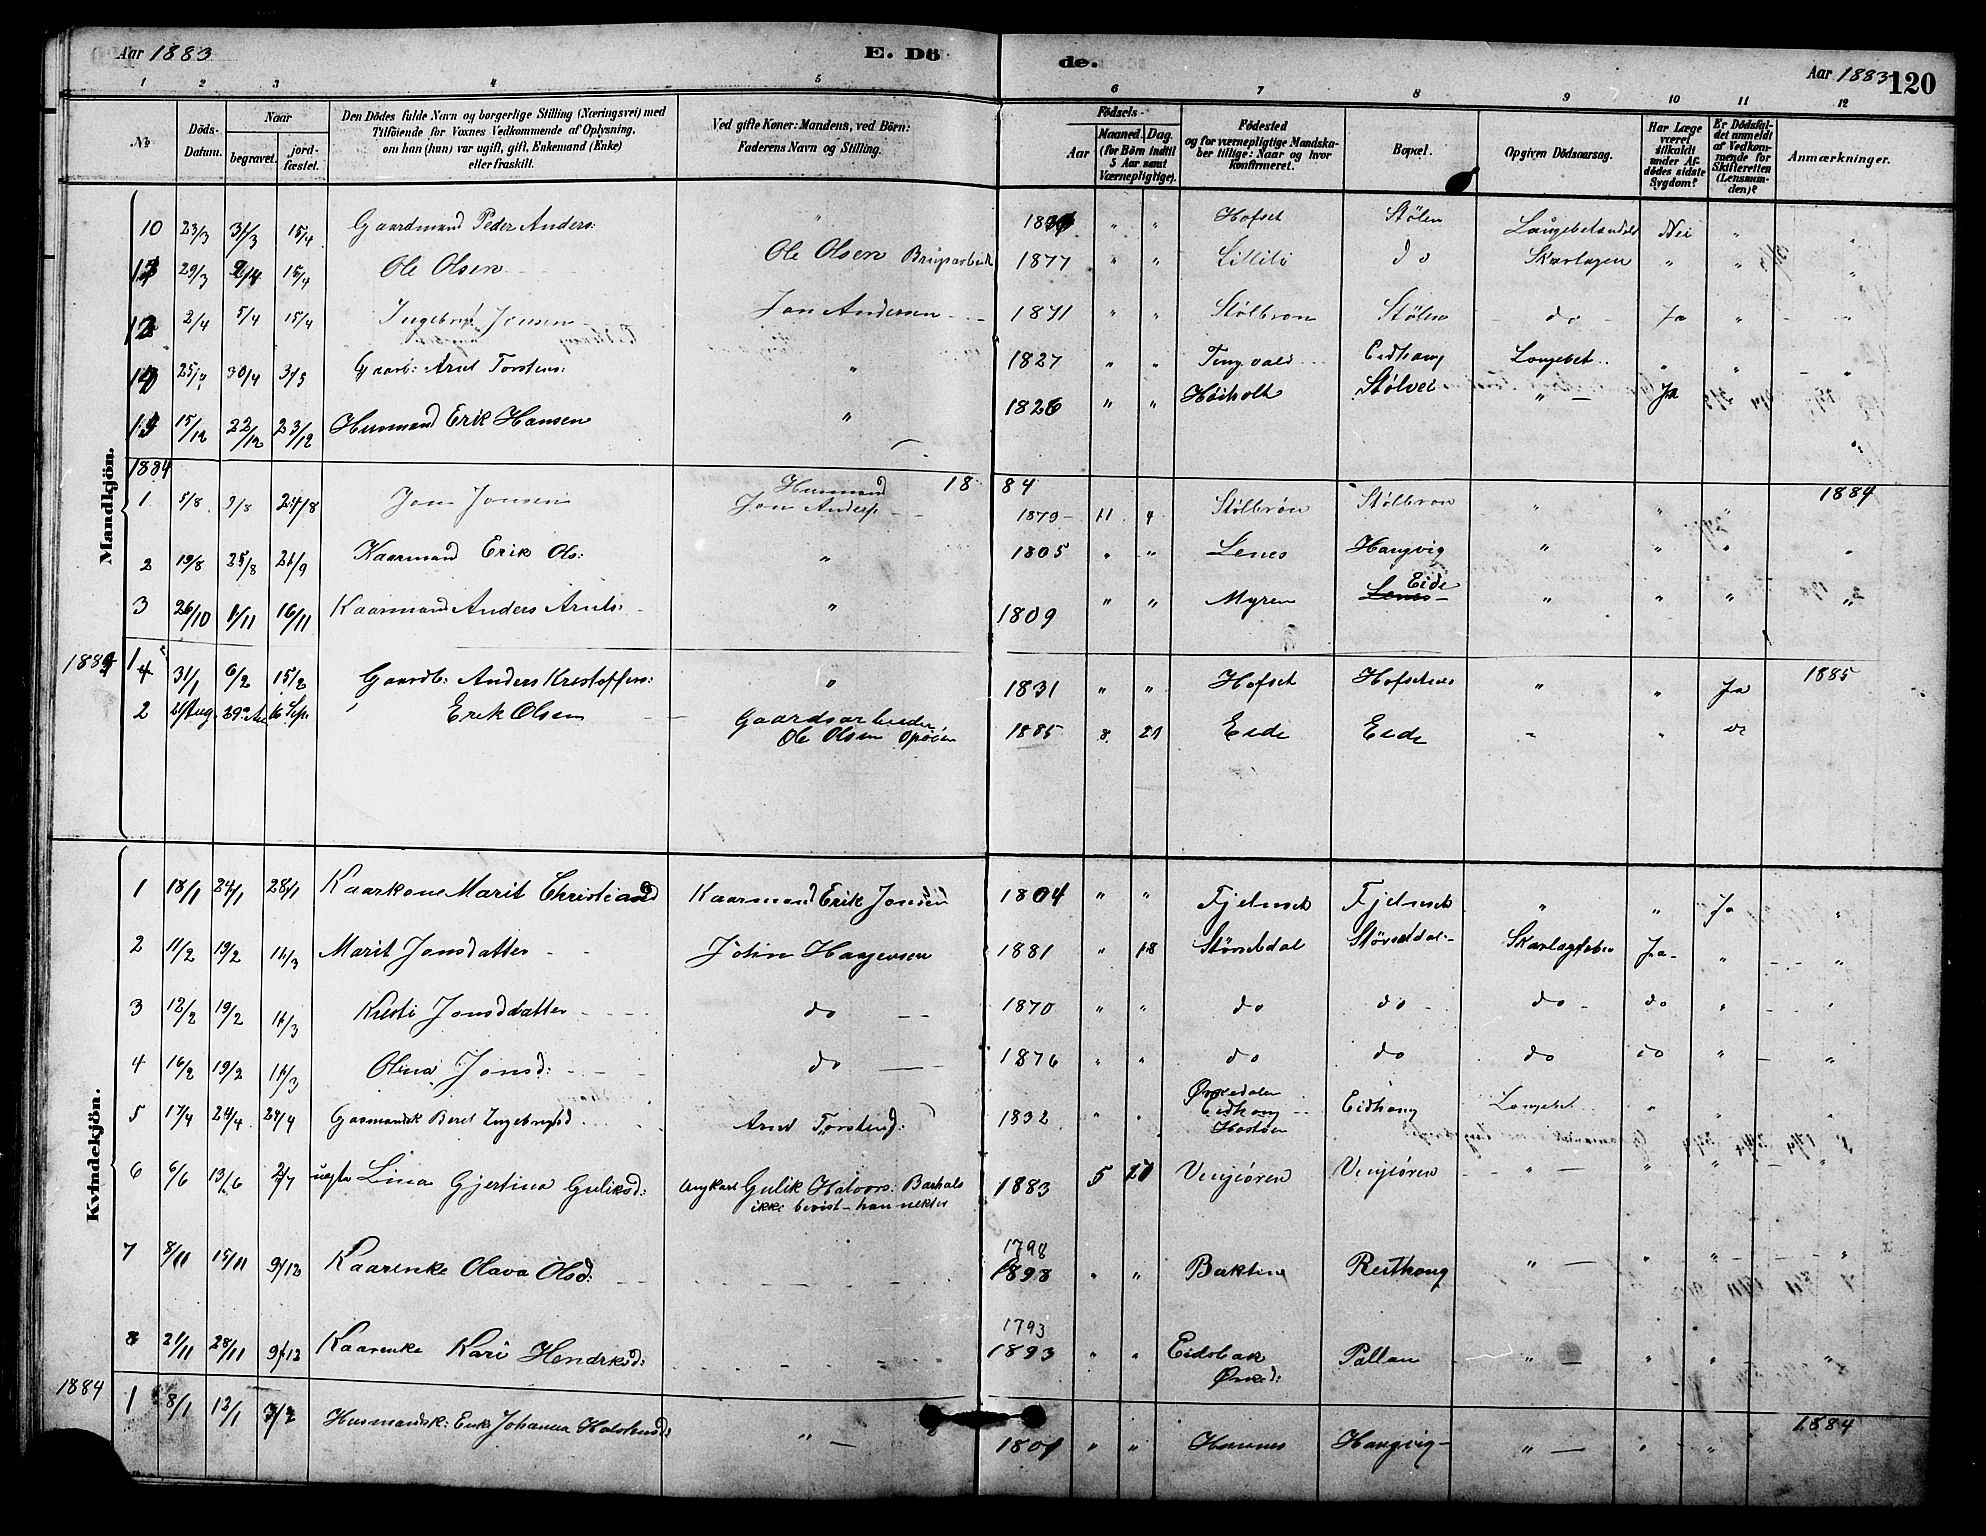 Aar 1883 E. Dö de. Aar 1883 120
1 2 3 4 5 6 7 8 9 10 11 12
No
Döds-Datum.
Naar
begravet.
jord-fæstet.
Den Dödes fulde Navn og borgerlige Stilling (Næringsvei) med
Tilföiende for Voxnes Vedkommende af Oplysning,
om han (hun) var ugift, gift, Enkemand (Enke)
eller fraskilt.
Ved gifte Koner: Mandens, ved Börn:
Faderens Navn og Stilling.
Födsels-
Aar
Maaned. Dag.
(for Börn indtil
5 Aar samt
Værnepligtige).
Födested
og for værnepligtige Mandska-
ber tillige: Naar og hvor
konfirmeret.
Bopæl.
Opgiven Dödsaarsag.
Har Læge
været
tilkaldt
under Af-
dödes sidste
Sygdom?
Er Dödsfal-
det anmeldt
af Vedkom-
mende for
Skifteretten
(Lensman-
den)?
Anmærkninger.
Mandkjön.
10 23/3 31/3 15/4 Gaardmand Peder Anders: " " " Hofset Stølen Nei " "
29/3 2/4 15/4 Ole Olsen Ole Olsen 1877 " " Lillelø do Skarlagen " " "
12 2/4 5/4 15/4 Ingebrigt Jonsen Jon Andersen 1871 " " Stølbrøn Stølen do Ja " "
25/4 30/4 3/5 Gaarb: Arnt Torstens: " 1827 " " Tingvald Eidhaug Lungebet. " " "
15/12 22/12 23/12 Husmand Erik Hansen " 1826 " " Høiholt Stølvei " Ja "
1884 18 84 1884
1 5/8 9/8 24/8 Jon Jonsen Husmand Jon Anders. 1879 11 4 Stølbrøn Stølbrøn " " "
2 19/8 25/8 21/9 Kaarmand Erik Ols: " 1805 " " Lenes Haugvig " " " "
3 26/10 1/11 16/11 Kaarmand Anders Arnts: " 1809 " " Myren Lenes Eide " " " "
1 31/1 6/2 15/2 Gaardb: Anders Kristoffers: " 1831 " " Hofset Hofsetnes " " Ja 1885
2 Erik Olsen Gaardsarbeider Ole Olsen 1885 8 21 Eide Eide " " do
Kvindekjön.
1 18/1 24/1 28/1 Kaarkone Marit Christiansd Kaarmand Erik Jonsen 1804 " " Fjelnset Fjelnset " " Ja "
2 11/2 19/2 11/3 Marit Jonsdatter John Haagensen 1881 " 18 Størsetdal Størsetdal Skarlagsfeber Ja " "
3 12/2 19/2 11/3 Kristi Jonsdatter do 1870 " " do do do do " "
4 16/2 19/2 11/3 Olina Jonsd: do 1876 " " do do do do " "
5 17/4 24/4 29/4 Gaarmandsk Beret Ingebrigtsd Arnt Torstens: 1832 " " Ørkedalen Eidhaug Eidhaug Lungebet " " "
6 6/6 13/6 2/7 uegte Lina Gjertina Guliksd: Ungkarl Gulik Halvors: Barhals
ikke bevist - han nekter 1883 5 21 Vinjeøren Vinjeøren " " " "
7 8/11 15/11 9/12 Kaarenke Olava Olsd: 1798 1898 " " Baktin Resthaug " " " "
8 21/11 28/11 9/12 Kaarenke Kari Hendriksd: 1793 1893 " " Eidsbak Ørked: Pallan " " " "
1884 1884
1 8/1 12/1 3/2 Husmandsk: Enke Johanna Halstensd: " 1801 " " Hennes Haugvig " " "